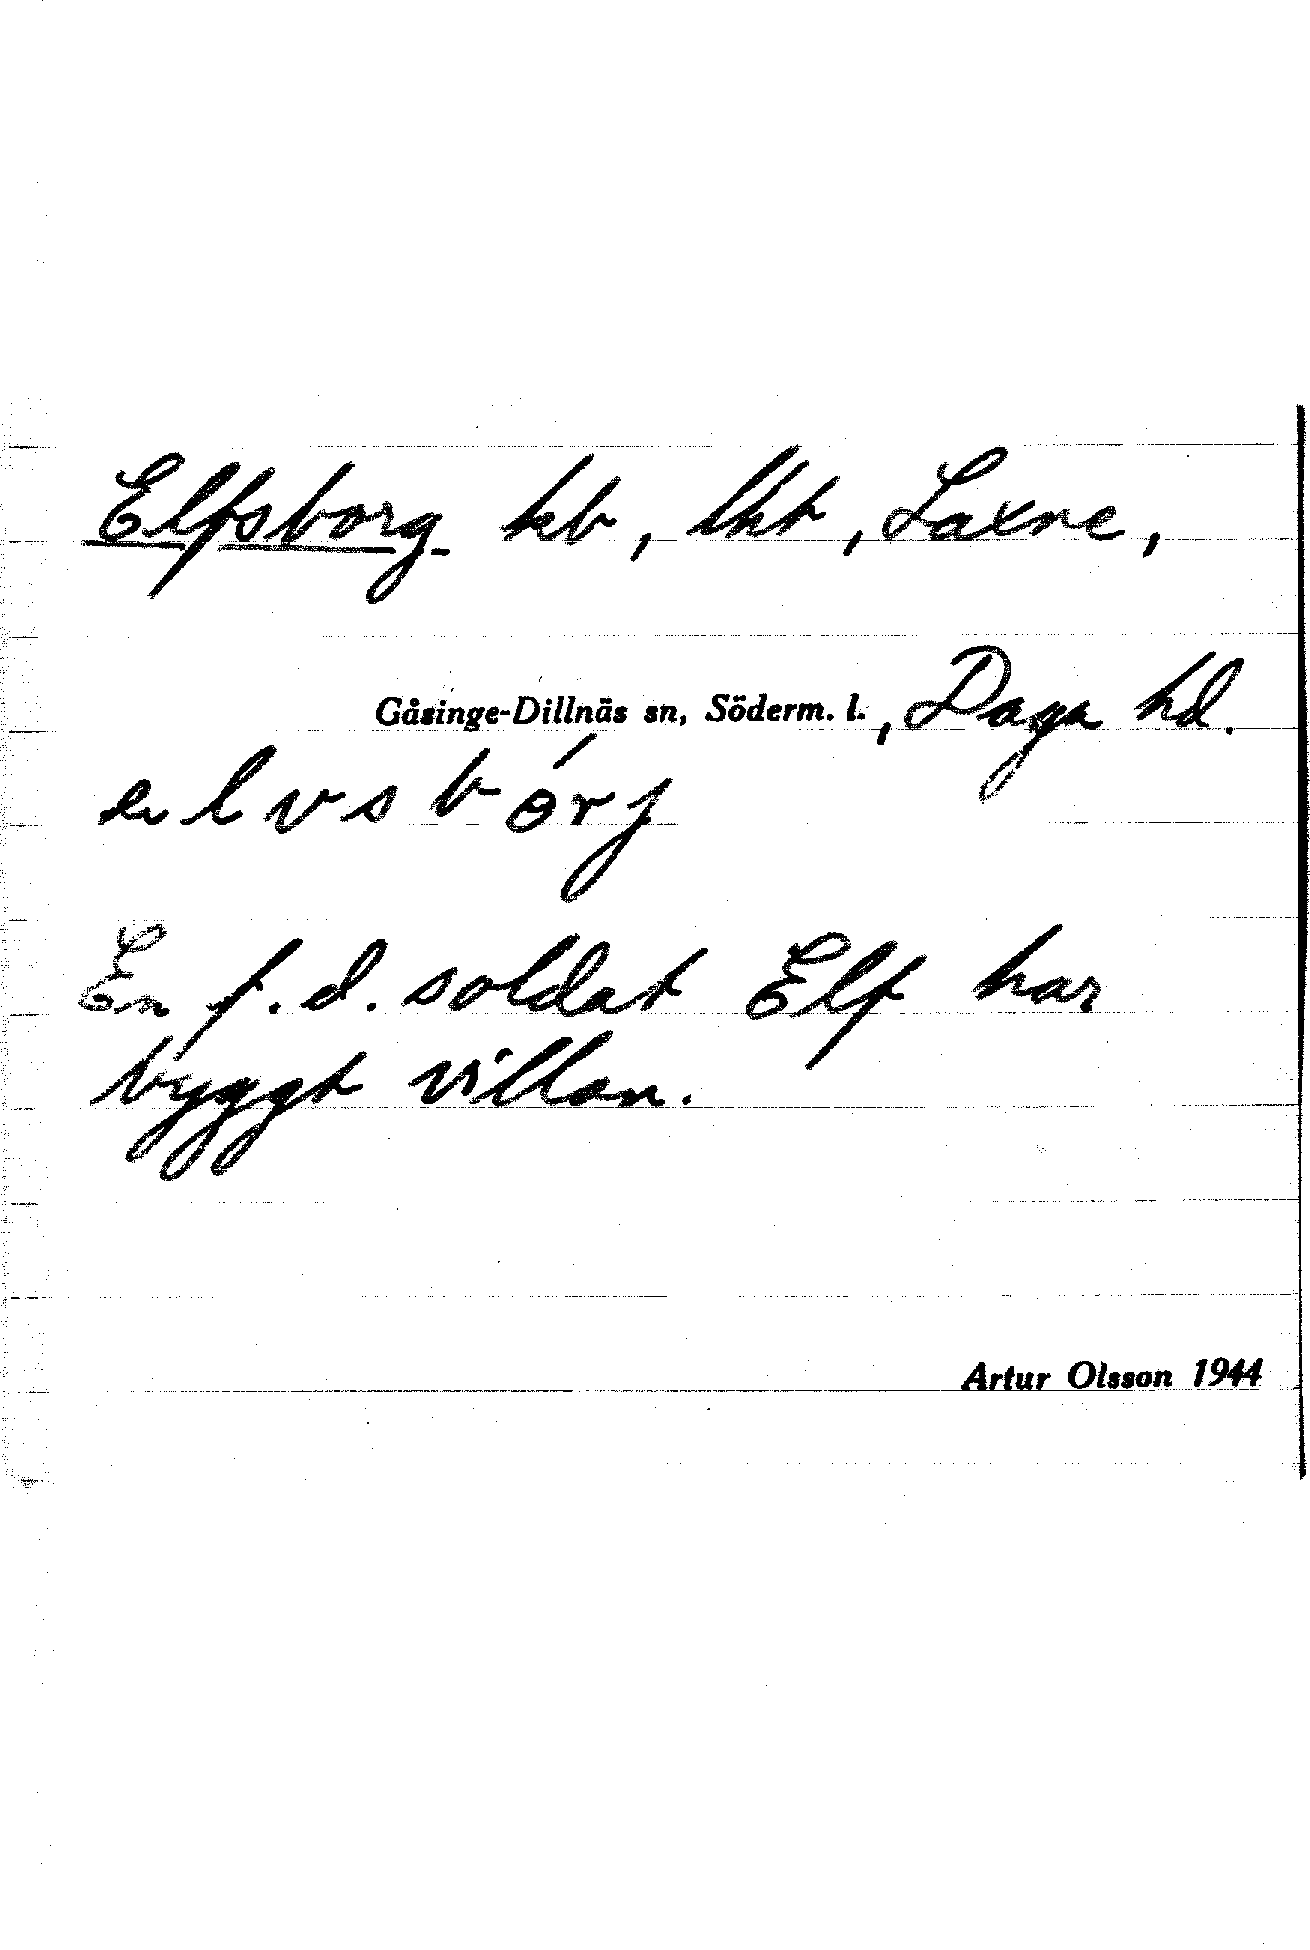 Elfsborg kb, lht, Laxne,
Gåsinge-Dillnäs sn, Söderm. l., Daga hd.
ælvsbórj
En f.d. soldat Elf har
byggt villan.
Artur Olsson 1944